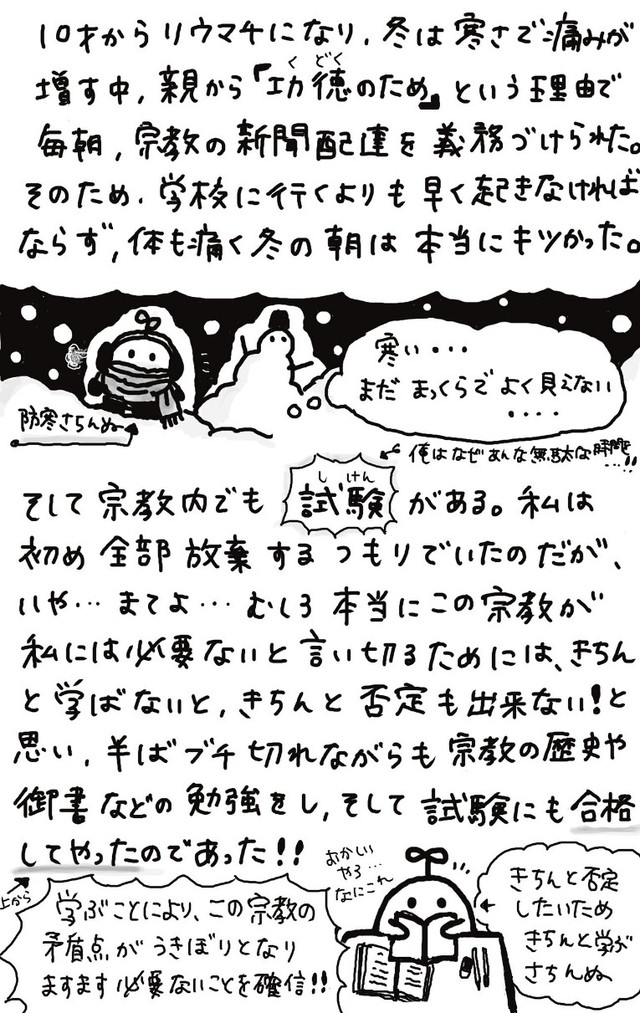 10才からリウマチになり、冬は寒さで痛みが
増す中、親から「功徳のため」という理由で
くどく
毎朝、宗教の新聞配達を義務づけられた。
そのため、学校に行くよりも早く起きなければ
ならず、体も痛く冬の朝は本当にキツかった。
寒い・・・
まだまっくらでよく見えない
・・・・
防寒さちんぬ
俺はなぜあんな無駄な時間を…!!
そして宗教内でも試験がある。私は
しけん
初め全部放棄するつもりでいたのだが、
いや…まてよ…むしろ本当にこの宗教が
私には必要ないと言い切るためには、きちん
と学ばないと、きちんと否定も出来ない!と
思い、半ばブチ切れながらも宗教の歴史や
御書などの勉強をし、そして試験にも合格
してやったのであった!!
上から
学ぶことにより、この宗教の
矛盾点がうきぼりとなり
ますます必要ないことを確信!!
おかしい
やろ…
なにこれ
きちんと否定
したいため
きちんと学ぶ
さちんぬ